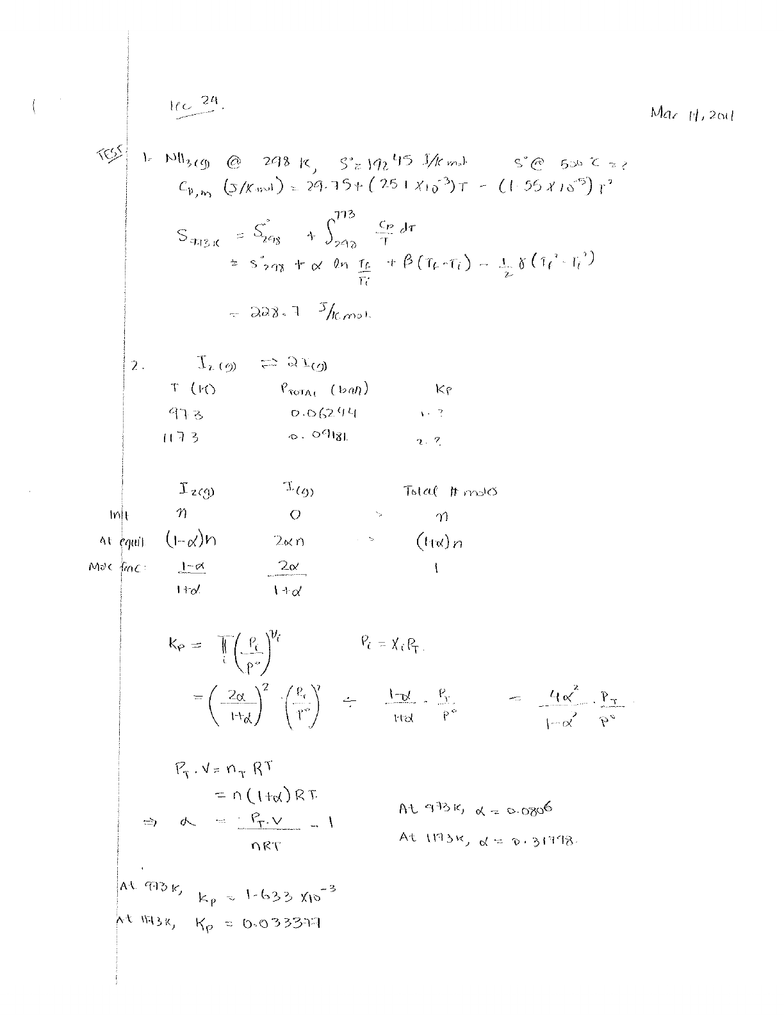 lec 24.
Mar 14, 2011
TEST
1. NH3(g) @ 298 K, S° = 192.45 J/K mol S° @ 500°C = ?
Cp,m (J/K mol) = 29.75 + (25.1 × 10⁻³)T − (1.55 × 10⁻⁵) T²
S773K = S°298 + ∫298^773 Cp/T dT
= S°298 + α ln Tf/Ti + β (Tf − Ti) − 1/2 γ (Tf² − Ti²)
= 228.7 J/K mol.
2. I2(g) ⇌ 2I(g)
T (K) PTOTAL (bar) Kp
973 0.06244 1. ?
1173 0.09181 2. ?
I2(g) I(g) Total # moles
Init n 0 n
At equil (1−α)n 2αn (1+α)n
Mole frac. 1−α/1+α 2α/1+α 1
Kp = Π i (Pi/P°)^νi Pi = Xi PT.
= (2α/1+α)² · (PT/P°)² ÷ 1−α/1+α · PT/P° = 4α²/1−α² · PT/P°
PT · V = nT RT
= n(1+α)RT.
⇒ α = PT·V/nRT − 1
At 973K, α = 0.0806
At 1173K, α = 0.31798.
At 973K, Kp = 1.633 × 10⁻³
At 1173K, Kp = 0.033379